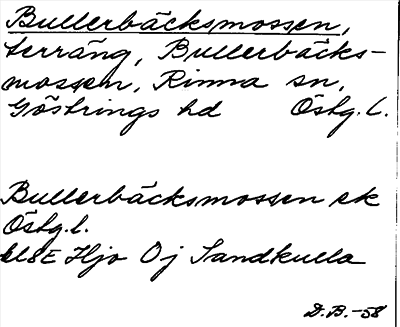 Bullerbäcksmossen,
terräng, Bullerbäcks-
mossen, Rinna sn,
Göstrings hd Östg. l.
Bullerbäcksmossen ek
Östg. l.
8E Hjo 0j Sandkulla
D.B.-58